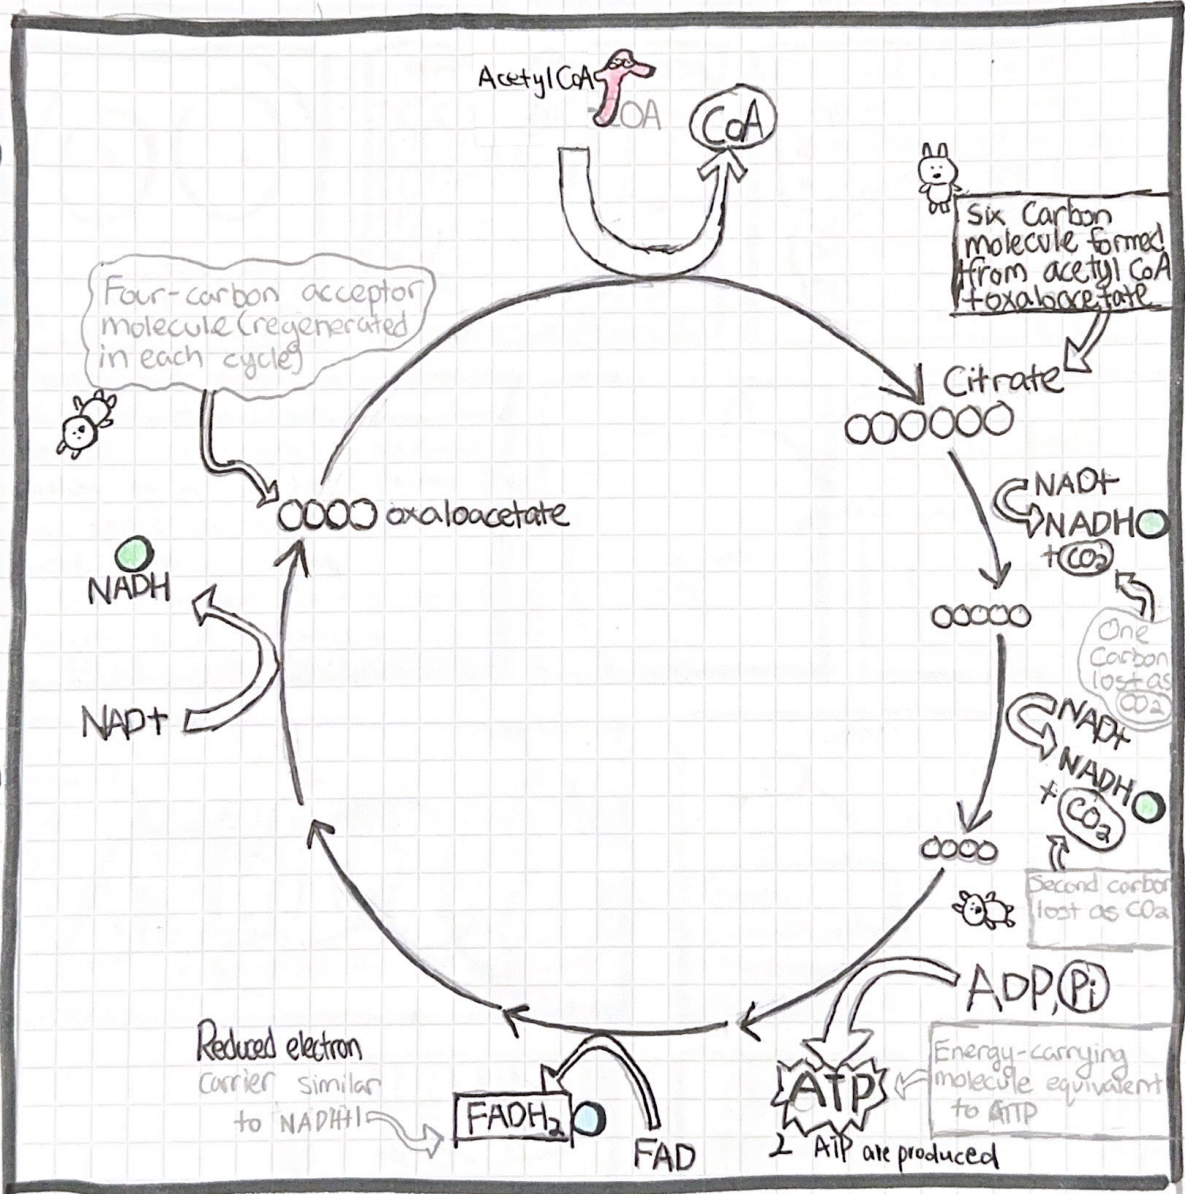 Acetyl CoA
COA
CoA
Six Carbon
molecule formed
from acetyl CoA
+oxaloacetate
Four-carbon acceptor
molecule (regenerated
in each cycle)
Citrate
oxaloacetate
NAD+
NADH
+CO2
One
Carbon
lost as
CO2
NADH
NAD+
NAD+
NADH
+ CO2
Second carbon
lost as CO2
ADP, Pi
Energy-carrying
molecule equivalent
to ATP
ATP
2 ATP are produced
Reduced electron
carrier similar
to NADH
FADH2
FAD